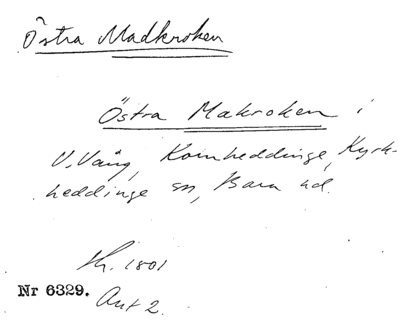 Östra Madkroken
Östra Makroken i
V. Väng, Kornheddinge, Kyrk-
heddinge sn, Bara hd.
Sk. 1801
Nr 6329.
Akt 2.